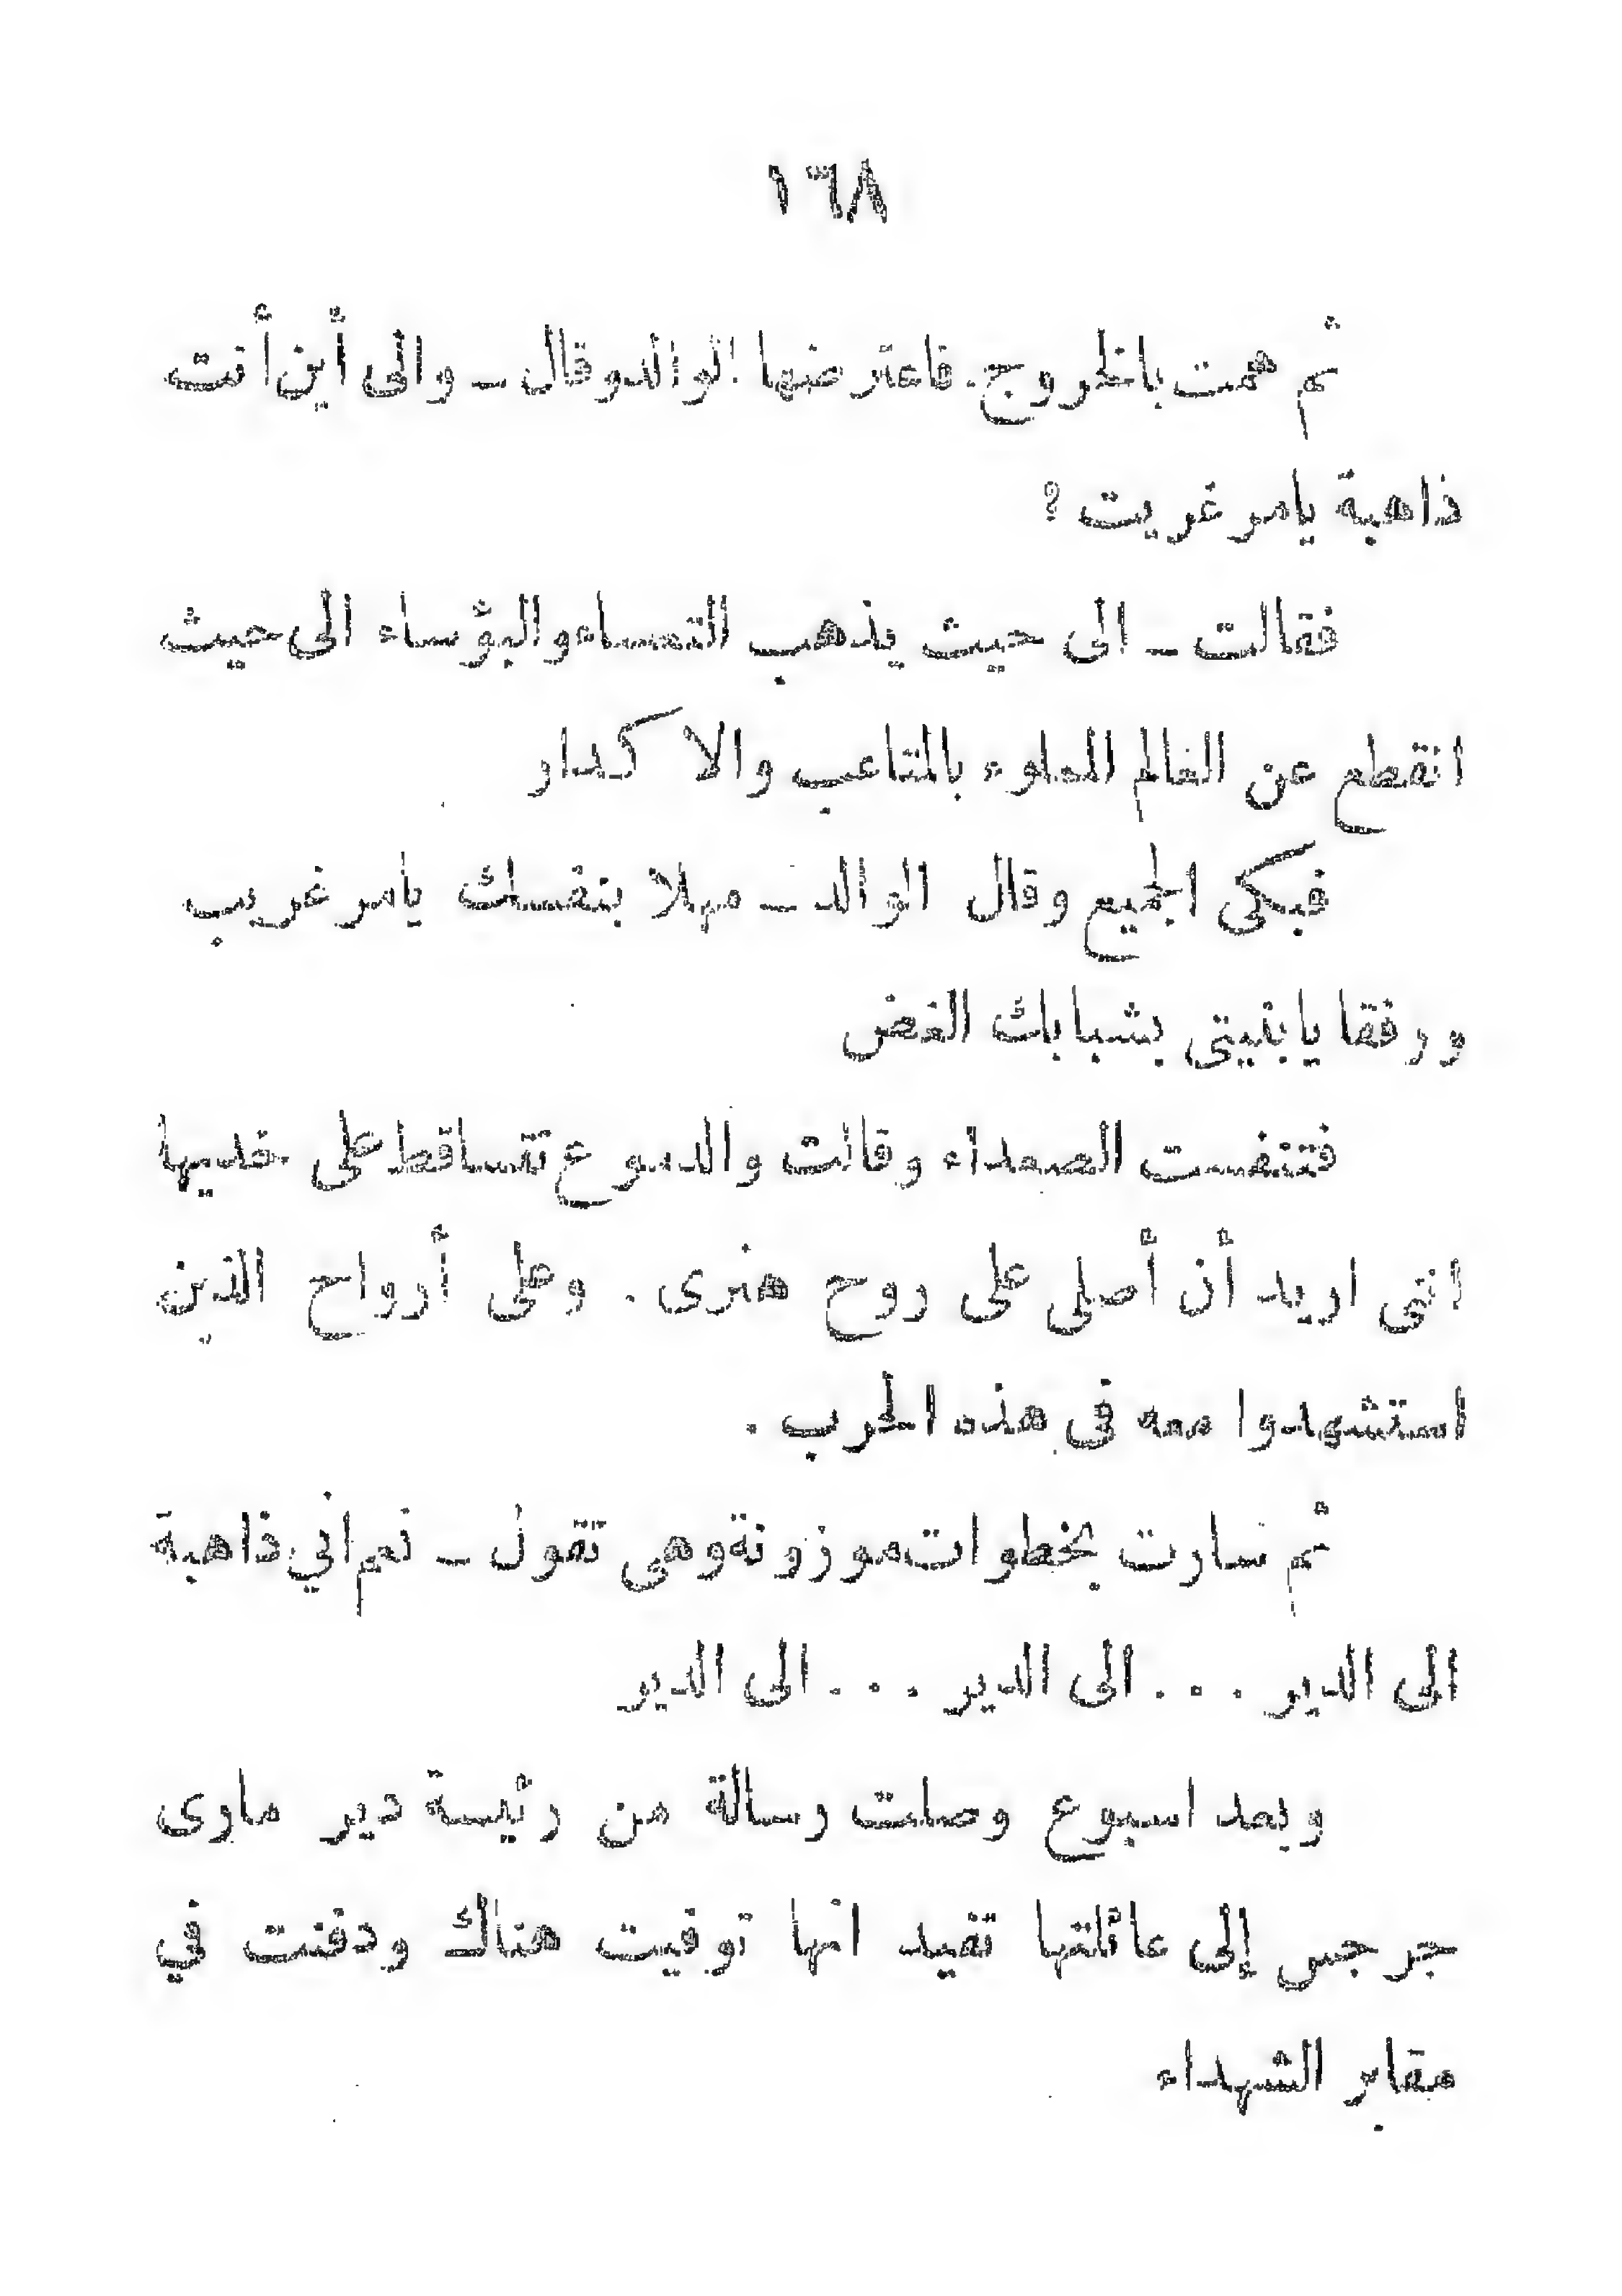 ١٦٨
ثم همت بالخروج. فاعترضها الوالد وقال ـ والى أين أنت
ذاهبة يامرغريت ؟
فقالت ـ الى حيث يذهب التعساء والبؤساء الى حيث
انقطع عن العالم المملوء بالمتاعب والاكدار
فبكى الجميع وقال الوالد ـ مهلا بنفسك يامرغريب
ورفقا يابنيتى بشبابك الغض
فتنفست الصعداء وقالت والدموع تتساقط على خديها
اننى اريد أن أصلى على روح هنرى . وعلى أرواح الذين
استشهدوا معه فى هذه الحرب .
ثم سارت بخطوات موزونة وهى تقول ـ نعم اني ذاهبة
الى الدير . . . الى الدير . . . الى الدير
وبعد اسبوع وصلت رسالة من رئيسة دير مارى
جرجس إلى عائلتها تفيد انها توفيت هناك ودفنت في
مقابر الشهداء